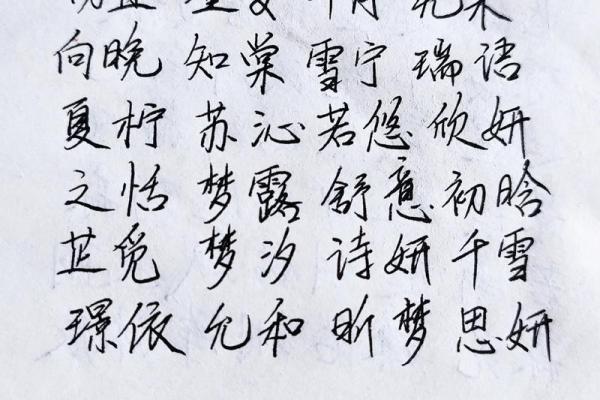 向晚 知棠 雪宁 瑞语
夏柠 苏沁 若悠 欣妍
之恬 梦露 舒意 初晗
芷觅 梦汐 诗妍 千雪
璟依 允和 昕梦 思妍